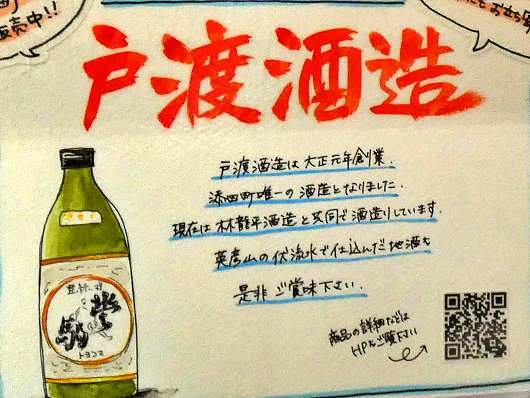 販売中!!
お立ち寄
戸渡酒造
戸渡酒造は大正元年創業.
添田町唯一の酒蔵となりました.
現在は林龍平酒造と共同で酒造りしています.
英彦山の伏流水で仕込んだ地酒を
是非ご賞味下さい.
トヨコマ
商品の詳細などは
HPをご覧下さい